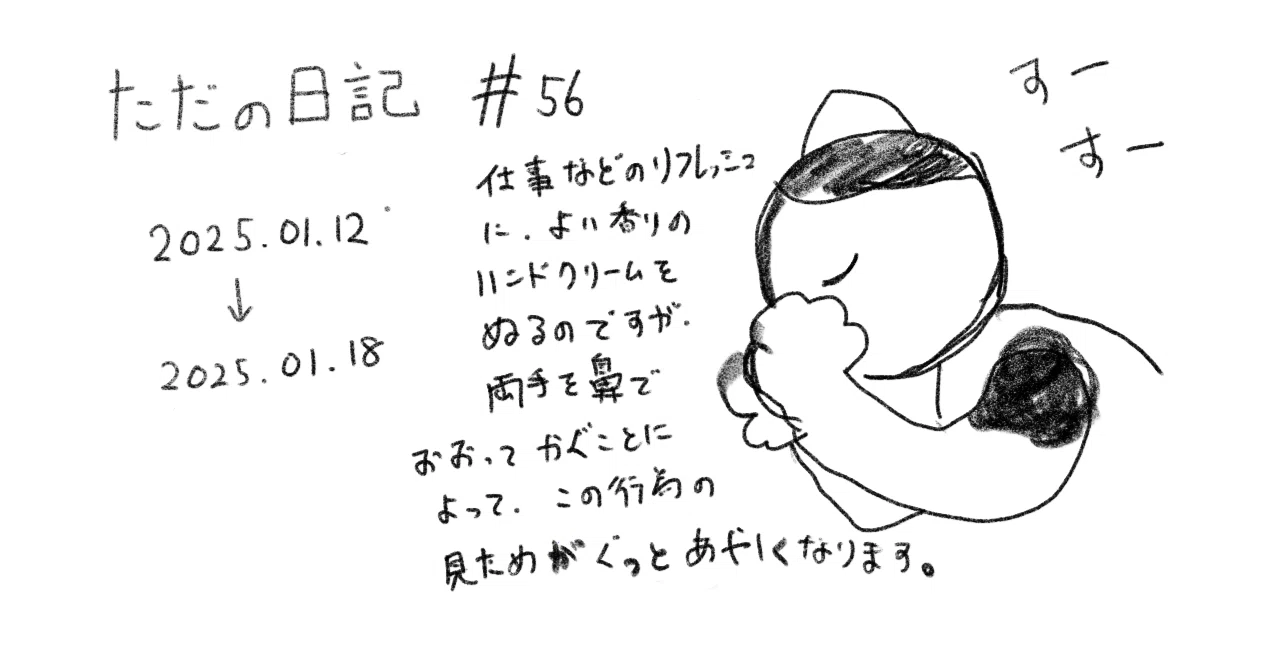 ただの日記 #56
2025.01.12
↓
2025.01.18
仕事などのリフレッシュ
に、よい香りの
ハンドクリームを
ぬるのですが、
両手を鼻で
おおって かぐことに
よって、この行為の
見ためがぐっとあやしくなります。
すー
すー